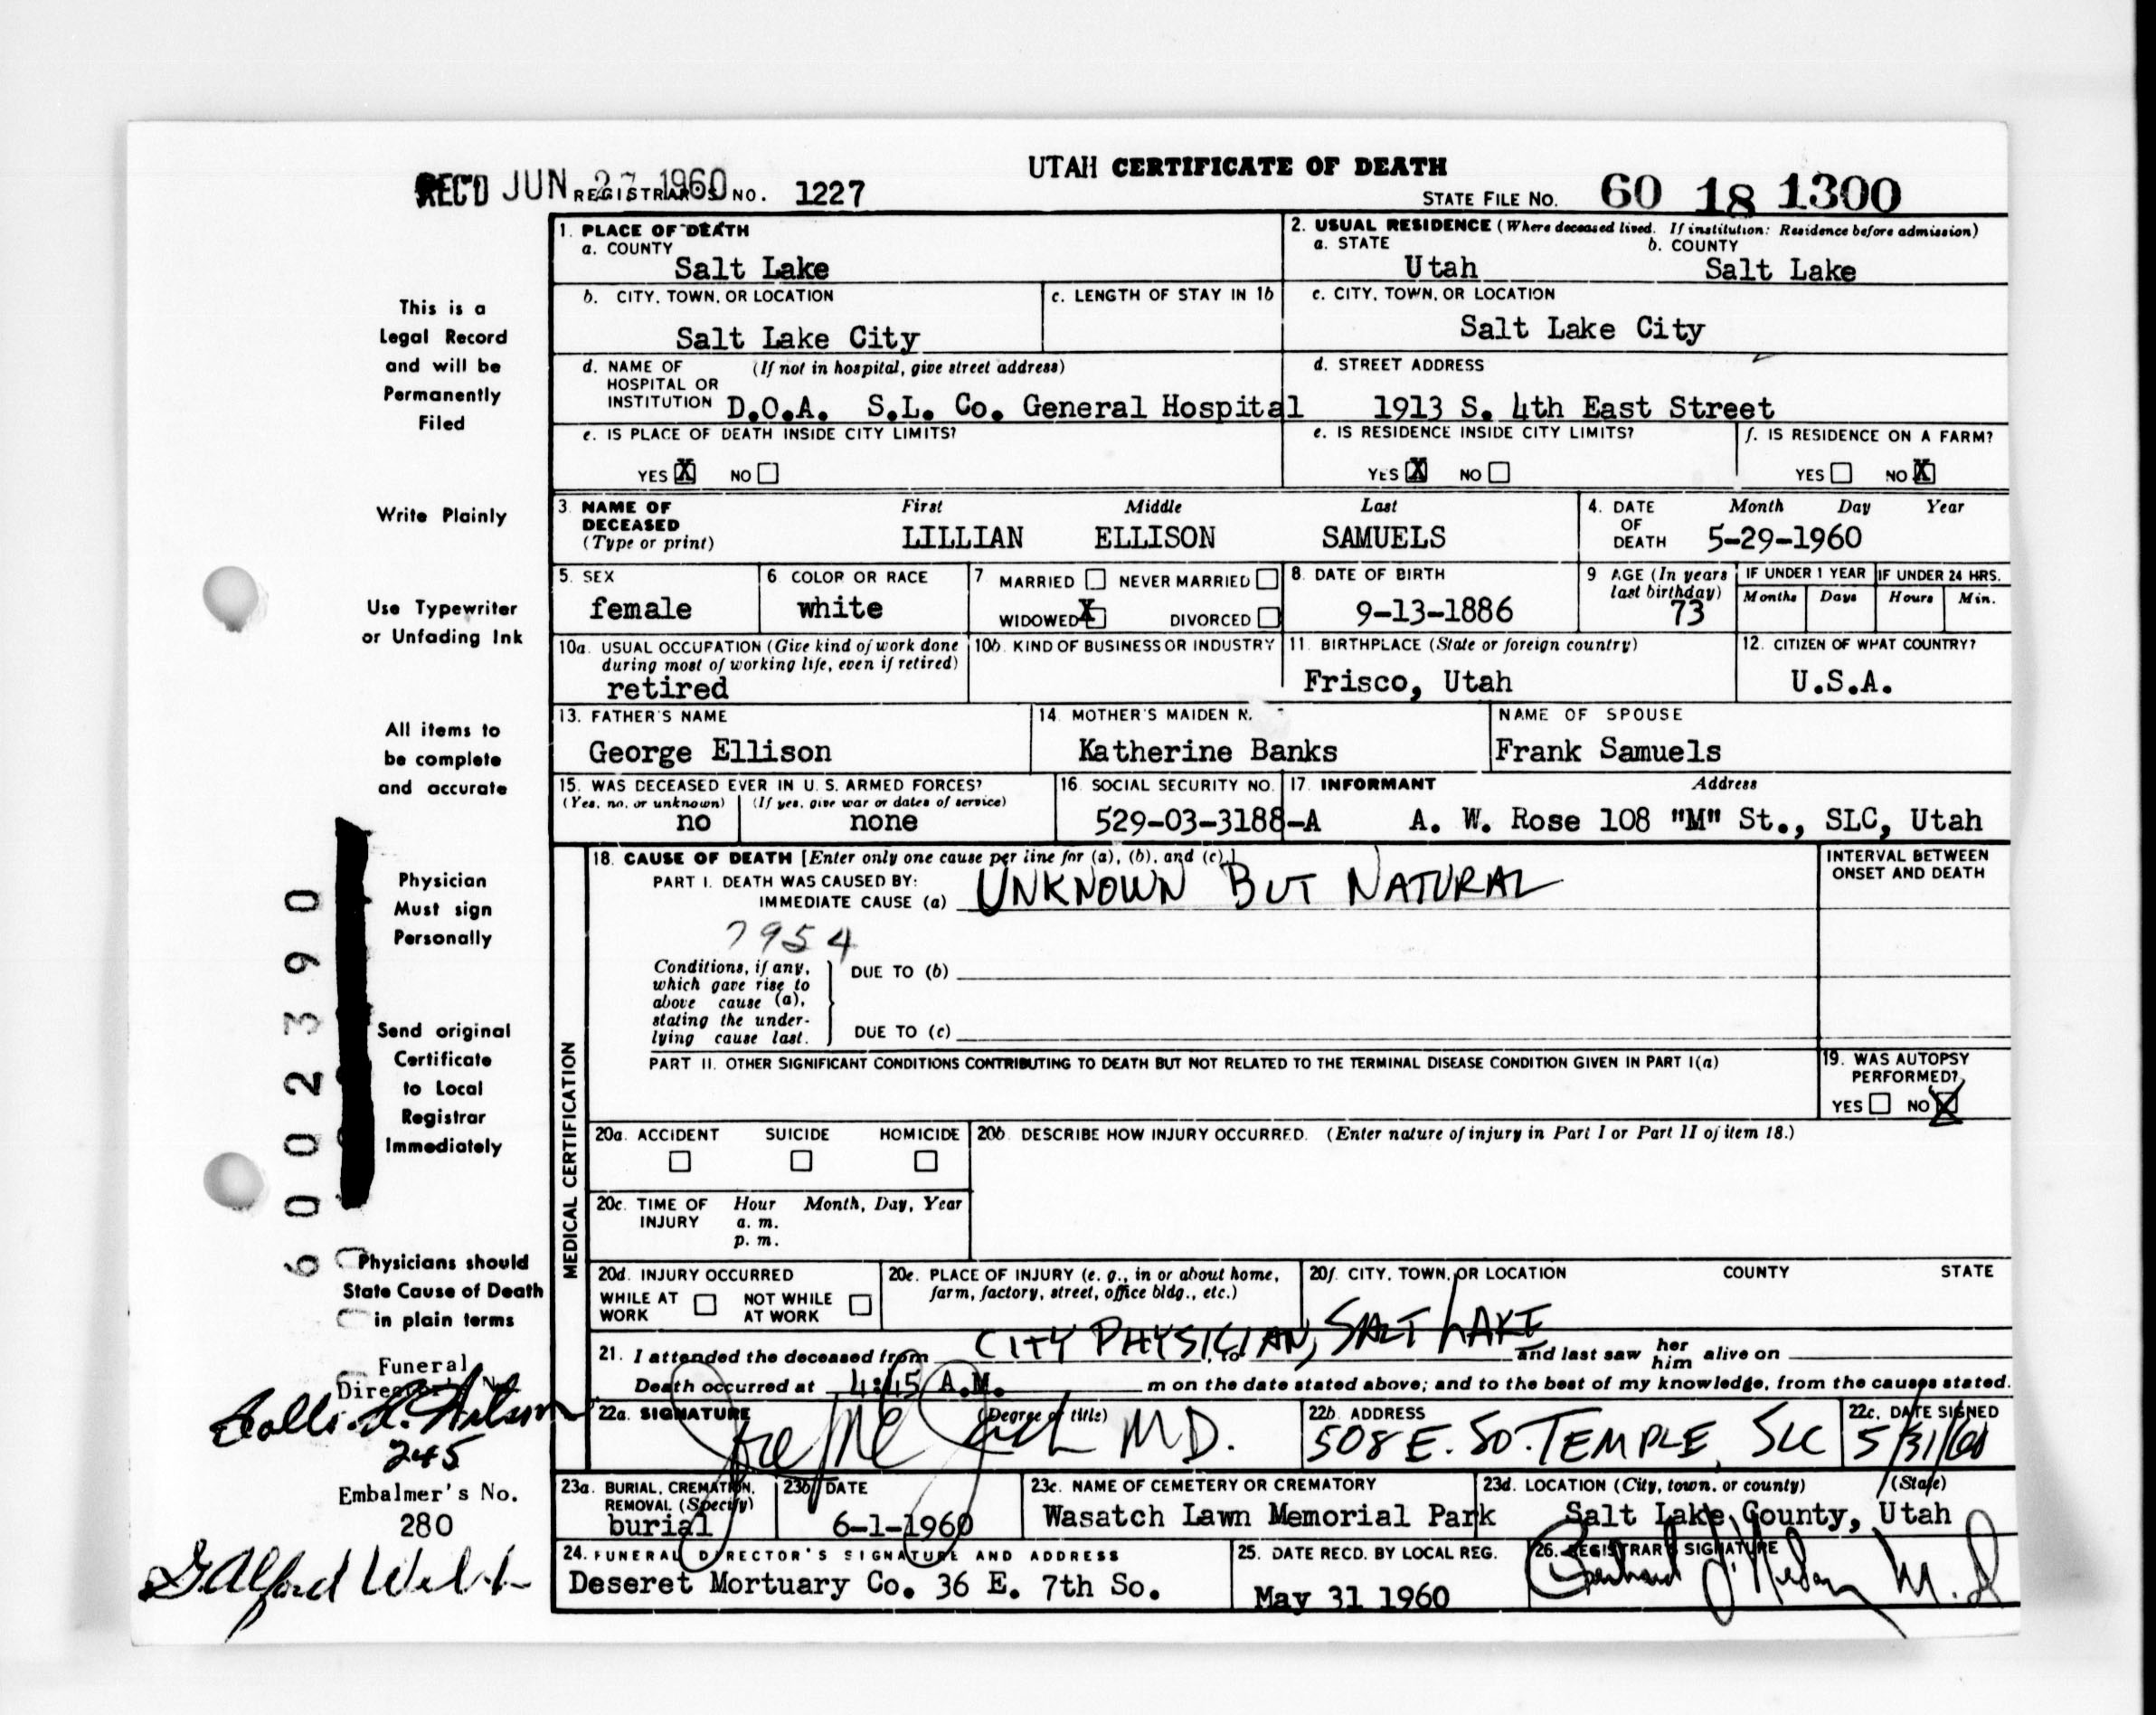 UTAH CERTIFICATE OF DEATH
REC'D JUN 27 1960 REGISTRAR'S NO. 1227
STATE FILE NO. 60 18 1300
1. PLACE OF DEATH
a. COUNTY
Salt Lake
2. USUAL RESIDENCE (Where deceased lived. If institution: Residence before admission)
a. STATE b. COUNTY
Utah Salt Lake
b. CITY, TOWN, OR LOCATION
Salt Lake City
c. LENGTH OF STAY IN 1b
c. CITY, TOWN, OR LOCATION
Salt Lake City
d. NAME OF HOSPITAL OR INSTITUTION (If not in hospital, give street address)
D.O.A. S.L. Co. General Hospital
d. STREET ADDRESS
1913 S. 4th East Street
e. IS PLACE OF DEATH INSIDE CITY LIMITS?
YES X NO
e. IS RESIDENCE INSIDE CITY LIMITS?
YES X NO
f. IS RESIDENCE ON A FARM?
YES NO X
3. NAME OF DECEASED (Type or print)
First Middle Last
LILLIAN ELLISON SAMUELS
4. DATE OF DEATH Month Day Year
5-29-1960
5. SEX
female
6 COLOR OR RACE
white
7 MARRIED NEVER MARRIED
WIDOWED X DIVORCED
8. DATE OF BIRTH
9-13-1886
9 AGE (In years last birthday)
73
IF UNDER 1 YEAR
Months Days
IF UNDER 24 HRS.
Hours Min.
10a. USUAL OCCUPATION (Give kind of work done during most of working life, even if retired)
retired
10b. KIND OF BUSINESS OR INDUSTRY
11. BIRTHPLACE (State or foreign country)
Frisco, Utah
12. CITIZEN OF WHAT COUNTRY?
U.S.A.
13. FATHER'S NAME
George Ellison
14. MOTHER'S MAIDEN N.
Katherine Banks
NAME OF SPOUSE
Frank Samuels
15. WAS DECEASED EVER IN U. S. ARMED FORCES?
(Yes, no, or unknown) (If yes, give war or dates of service)
no none
16. SOCIAL SECURITY NO.
529-03-3188-A
17. INFORMANT Address
A. W. Rose 108 "M" St., SLC, Utah
MEDICAL CERTIFICATION
18. CAUSE OF DEATH [Enter only one cause per line for (a), (b), and (c).]
PART I. DEATH WAS CAUSED BY:
IMMEDIATE CAUSE (a) UNKNOWN BUT NATURAL
7954
Conditions, if any, which gave rise to above cause (a), stating the underlying cause last.
DUE TO (b)
DUE TO (c)
INTERVAL BETWEEN ONSET AND DEATH
PART II. OTHER SIGNIFICANT CONDITIONS CONTRIBUTING TO DEATH BUT NOT RELATED TO THE TERMINAL DISEASE CONDITION GIVEN IN PART I(a)
19. WAS AUTOPSY PERFORMED?
YES NO X
20a. ACCIDENT SUICIDE HOMICIDE
20b. DESCRIBE HOW INJURY OCCURRED. (Enter nature of injury in Part I or Part II of item 18.)
20c. TIME OF INJURY Hour Month, Day, Year
a. m.
p. m.
20d. INJURY OCCURRED
WHILE AT WORK NOT WHILE AT WORK
20e. PLACE OF INJURY (e. g., in or about home, farm, factory, street, office bldg., etc.)
20f. CITY, TOWN, OR LOCATION COUNTY STATE
CITY PHYSICIAN, SALT LAKE
21. I attended the deceased from to and last saw her him alive on
Death occurred at 4:45 A.M. m on the date stated above; and to the best of my knowledge, from the causes stated.
22a. SIGNATURE (Degree or title)
MD.
22b. ADDRESS
508 E. SO. TEMPLE, SLC
22c. DATE SIGNED
5/31/60
23a. BURIAL, CREMATION, REMOVAL (Specify)
burial
23b. DATE
6-1-1960
23c. NAME OF CEMETERY OR CREMATORY
Wasatch Lawn Memorial Park
23d. LOCATION (City, town, or county) (State)
Salt Lake County, Utah
24. FUNERAL DIRECTOR'S SIGNATURE AND ADDRESS
Deseret Mortuary Co. 36 E. 7th So.
25. DATE RECD. BY LOCAL REG.
May 31 1960
26. REGISTRAR'S SIGNATURE
M.D
This is a
Legal Record
and will be
Permanently
Filed
Write Plainly
Use Typewriter
or Unfading Ink
All items to
be complete
and accurate
Physician
Must sign
Personally
Send original
Certificate
to Local
Registrar
Immediately
Physicians should
State Cause of Death
in plain terms
Funeral
Director's No.
245
Embalmer's No.
280
6002390